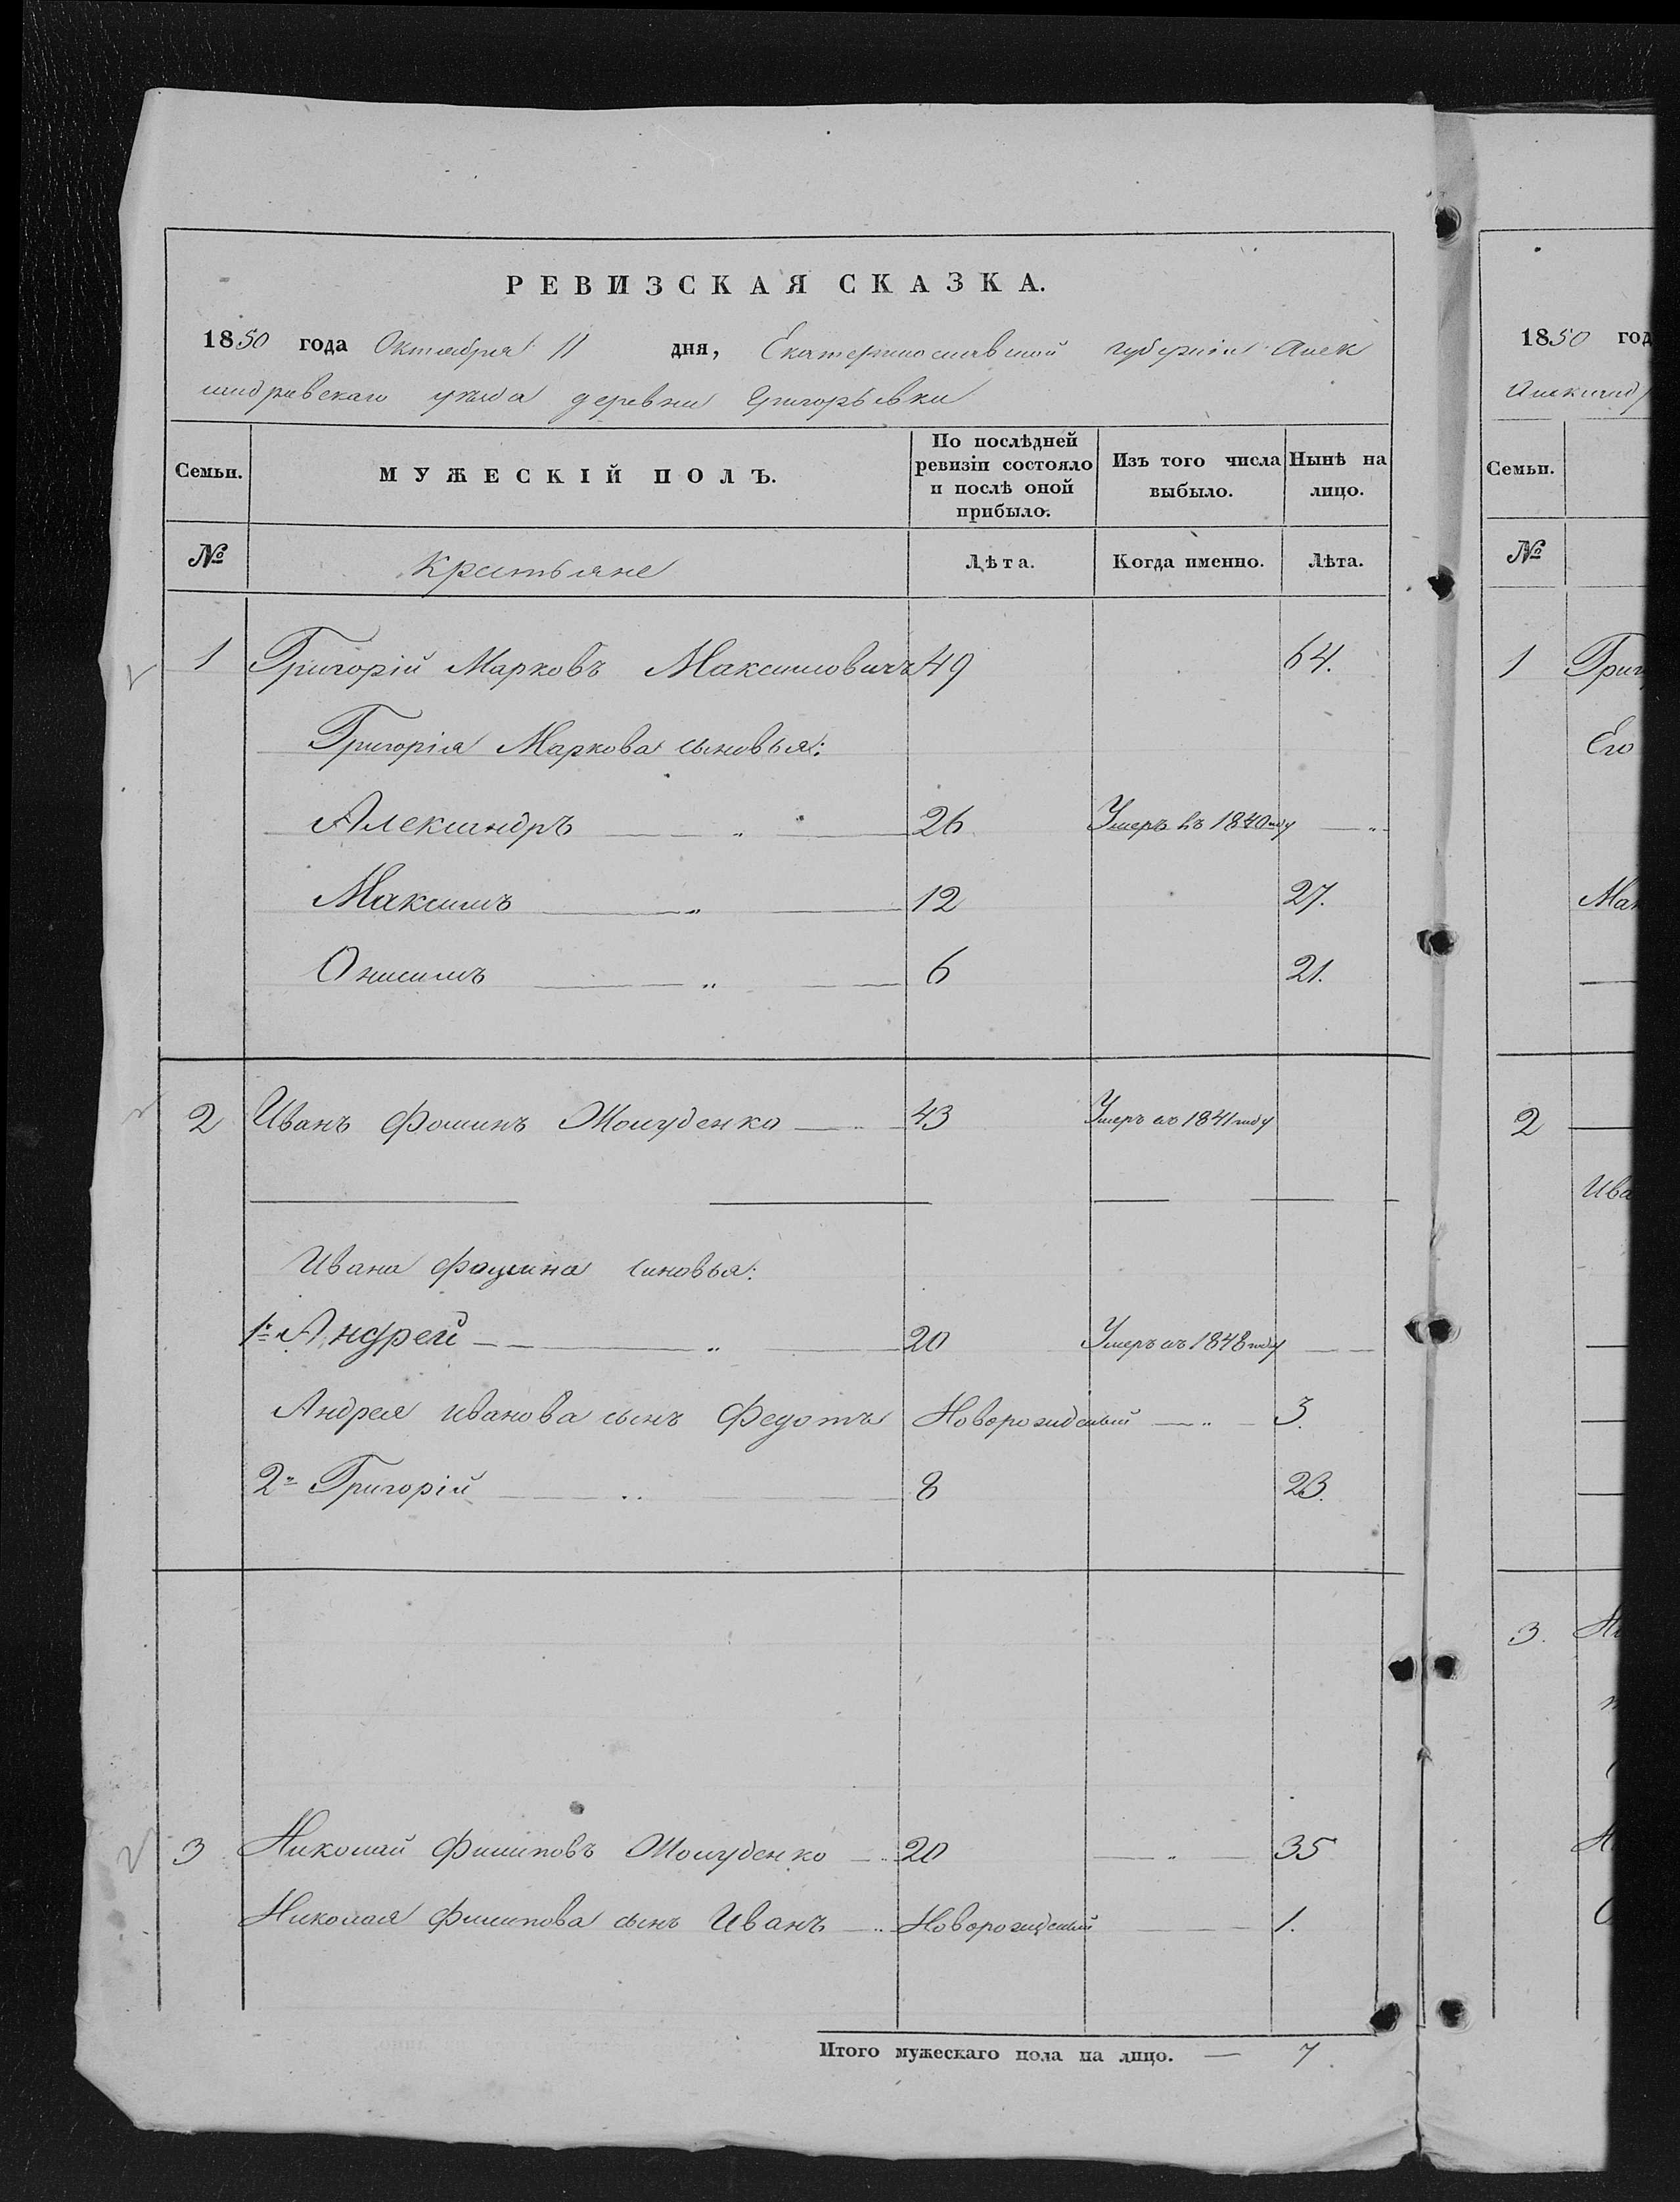 РЕВИЗСКАЯ СКАЗКА.
1850 года Октября 11 дня, Екатеринославской губернiи Алек
сандровскаго уѣзда деревни Григорьевки
Семьи.
МУЖЕСКIЙ ПОЛЪ.
По послѣдней ревизiи состояло и послѣ оной прибыло.
Изъ того числа выбыло.
Нынѣ на лицо.
№ Крестьяне Лѣта. Когда именно. Лѣта.
1 Григорiй Марковъ Максимовичъ 49 64.
Григорiя Маркова сыновья:
Александръ — " — 26 Умеръ въ 1840 году — "
Максимъ — " — 12 27.
Онисимъ — " — 6 21.
2 Иванъ Фоминъ 43 Умеръ въ 1841 году
Ивана Фомина синовья:
1й Андрей — " — 20 Умеръ въ 1848 году —
Андрея Иванова сынъ Федотъ Новорожденый — " — 3.
2й Григорiй — " — 8 23.
3 Николай Филиповъ — " 20 — " — 35
Николая Филипова сынъ Иванъ — " Новорожденый — 1.
Итого мужескаго пола на лицо. — 7.
1850 год
Александ
Семьи.
№
1 Григ
Его
Мак
2
Ива
3.